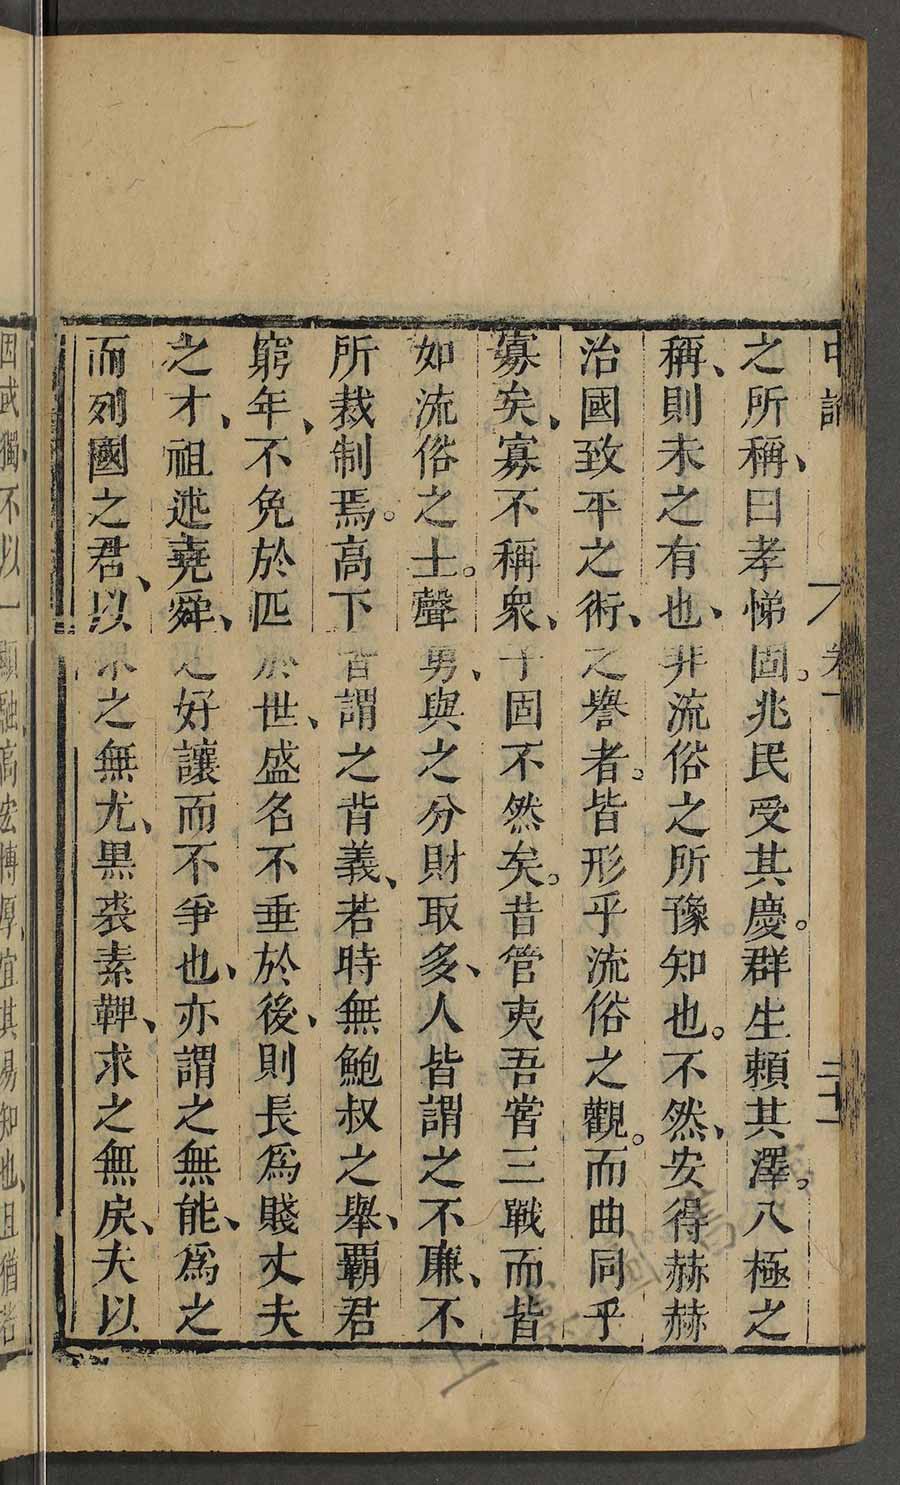 中論 卷
之所稱、曰孝悌固。兆民受其慶。群生賴其澤。八極之
稱、則未之有也、非流俗之所豫知也。不然、安得赫赫
治國致平之術、之譽者。皆形乎流俗之觀。而曲同乎
寡矣、寡不稱衆、于固不然矣。昔管夷吾嘗三戰而皆
如流俗之士。聲勇、與之分財取多、人皆謂之不廉、不
所裁制焉。高下皆謂之背義、若時無鮑叔之舉、霸君
窮年、不免於匹於世、盛名不垂於後、則長爲賤丈夫
之才、祖述堯舜、之好讓而不爭也、亦謂之無能、爲之
而列國之君、以求之無尤、黑裘素鞞、求之無戾、夫以
獨不以一顯融高宏博厚、宜其易知也、且猶若